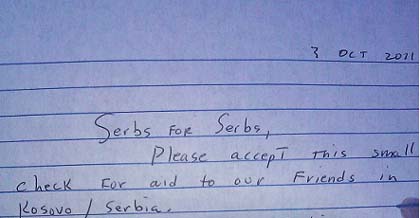 3 OCT 2011
Serbs For Serbs,
Please accept This small
check For aid to our Friends in
Kosovo / Serbia.